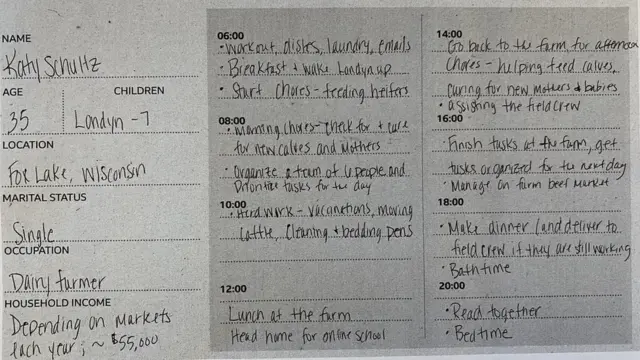 NAME
Katy Schultz
AGE
CHILDREN
35
Londyn - 7
LOCATION
Fox Lake, Wisconsin
MARITAL STATUS
Single
OCCUPATION
Dairy farmer
HOUSEHOLD INCOME
Depending on markets
each year; ~ $55,000
06:00
• Workout, dishes, laundry, emails
• Breakfast + wake Londyn up
• Start chores - feeding heifers
08:00
• Morning chores - check for + care
for new calves and mothers
• Organize a team of 6 people and
Prioritize tasks for the day
10:00
• Herd work - vaccinations, moving
cattle, cleaning + bedding pens
12:00
Lunch at the farm
Head home for online school
14:00
Go back to the farm for afternoon
chores - helping feed calves,
caring for new mothers + babies
• assisting the field crew
16:00
• Finish tasks at the farm, get
tasks organized for the next day
• Manage on farm beef market
18:00
• Make dinner (and deliver to
field crew if they are still working
• Bath time
20:00
• Read together
• Bedtime